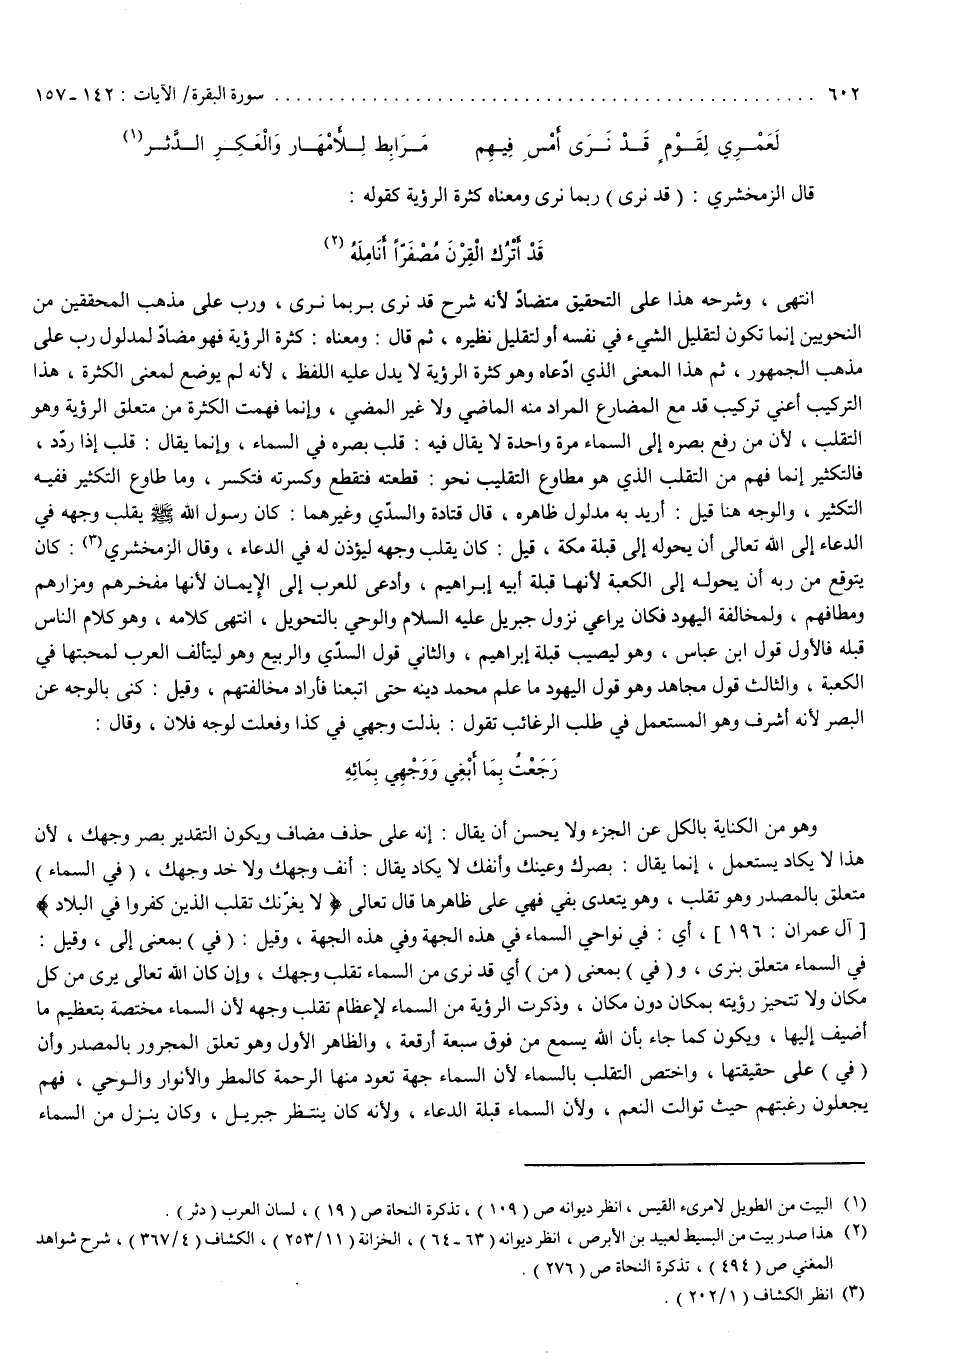 ٦٠٢ ................................................ سورة البقرة/ الآيات : ١٤٢ ـ ١٥٧
لَعَمْـرِي لِقَـوْمٍ قَـدْ نَـرَى أَمْسِ فِيهِم مَـرَابِط لِـلأَمْهَـار وَالْعَكِـرِ الـدَّثـر(١)
قال الزمخشري : ( قد نرى ) ربما نرى ومعناه كثرة الرؤية كقوله :
قَدْ أَتْرُك الْقِرْنَ مُصْفَرّاً أَنَامِلهُ (٢)
انتهى ، وشرحه هذا على التحقيق متضادّ لأنه شرح قد نرى بـربما نـرى ، ورب على مذهب المحققين من
النحويين إنما تكون لتقليل الشيء في نفسه أو لتقليل نظيره ، ثم قال : ومعناه : كثرة الرؤية فهو مضادّ لمدلول رب على
مذهب الجمهور ، ثم هذا المعنى الذي ادّعاه وهو كثرة الرؤية لا يدل عليه اللفظ ، لأنه لم يوضع لمعنى الكثرة ، هذا
التركيب أعني تركيب قد مع المضارع المراد منه الماضي ولا غير المضي ، وإنما فهمت الكثرة من متعلق الرؤية وهو
التقلب ، لأن من رفع بصره إلى السماء مرة واحدة لا يقال فيه : قلب بصره في السماء ، وإنما يقال : قلب إذا ردّد ،
فالتكثير إنما فهم من التقلب الذي هو مطاوع التقليب نحو : قطعته فتقطع وكسرته فتكسر ، وما طاوع التكثير ففيـه
التكثير ، والوجه هنا قيل : أريد به مدلول ظاهره ، قال قتادة والسدّي وغيرهما : كان رسول الله ﷺ يقلب وجهه في
الدعاء إلى الله تعالى أن يحوله إلى قبلة مكة ، قيل : كان يقلب وجهه ليؤذن له في الدعاء ، وقال الزمخشري(٣) : كان
يتوقع من ربه أن يحولـه إلى الكعبة لأنهـا قبلة أبيه إبـراهيم ، وأدعى للعرب إلى الإيمـان لأنها مفخـرهم ومزارهم
ومطافهم ، ولمخالفة اليهود فكان يراعي نزول جبريل عليه السلام والوحي بالتحويل ، انتهى كلامه ، وهو كلام الناس
قبله فالأول قول ابن عباس ، وهو ليصيب قبلة إبراهيم ، والثاني قول السدّي والربيع وهو ليتألف العرب لمحبتها في
الكعبة ، والثالث قول مجاهد وهو قول اليهود ما علم محمد دينه حتى اتبعنا فأراد مخالفتهم ، وقيل : كنى بالوجه عن
البصر لأنه أشرف وهو المستعمل في طلب الرغائب تقول : بذلت وجهي في كذا وفعلت لوجه فلان ، وقال :
رَجَعْتُ بِمَا أَبْغِي وَوَجْهِي بِمَائِهِ
وهو من الكناية بالكل عن الجزء ولا يحسن أن يقال : إنه على حذف مضاف ويكون التقدير بصر وجهك ، لأن
هذا لا يكاد يستعمل ، إنما يقال : بصرك وعينك وأنفك لا يكاد يقال : أنف وجهك ولا خد وجهك ، ( في السماء )
متعلق بالمصدر وهو تقلب ، وهو يتعدى بفي فهي على ظاهرها قال تعالى ﴿ لا يغرّنك تقلب الذين كفروا في البلاد ﴾
[ آل عمران : ١٩٦ ] ، أي : في نواحي السماء في هذه الجهة وفي هذه الجهة ، وقيل : ( في ) بمعنى إلى ، وقيل :
في السماء متعلق بنرى ، و ( في ) بمعنى ( من ) أي قد نرى من السماء تقلب وجهك ، وإن كان الله تعالى يرى من كل
مكان ولا تتحيز رؤيته بمكان دون مكان ، وذكرت الرؤية من السماء لإعظام تقلب وجهه لأن السماء مختصة بتعظيم ما
أضيف إليها ، ويكون كما جاء بأن الله يسمع من فوق سبعة أرقعة ، والظاهر الأول وهو تعلق المجرور بالمصدر وأن
( في ) على حقيقتها ، واختص التقلب بالسماء لأن السماء جهة تعود منها الرحمة كالمطر والأنوار والـوحي ، فهم
يجعلون رغبتهم حيث توالت النعم ، ولأن السماء قبلة الدعاء ، ولأنه كان ينتـظر جبريـل ، وكان ينـزل من السماء
(١) البيت من الطويل لامرىء القيس ، انظر ديوانه ص ( ١٠٩ ) ، تذكرة النحاة ص ( ١٩ ) ، لسان العرب ( دثر ) .
(٢) هذا صدر بيت من البسيط لعبيد بن الأبرص ، انظر ديوانه ( ٦٣ ـ ٦٤ ) ، الخزانة ( ٢٥٣/١١ ) ، الكشاف ( ٣٦٧/٤ ) ، شرح شواهد
المغني ص ( ٤٩٤ ) ، تذكرة النحاة ص ( ٢٧٦ ) .
(٣) انظر الكشاف ( ٢٠٢/١ ) .